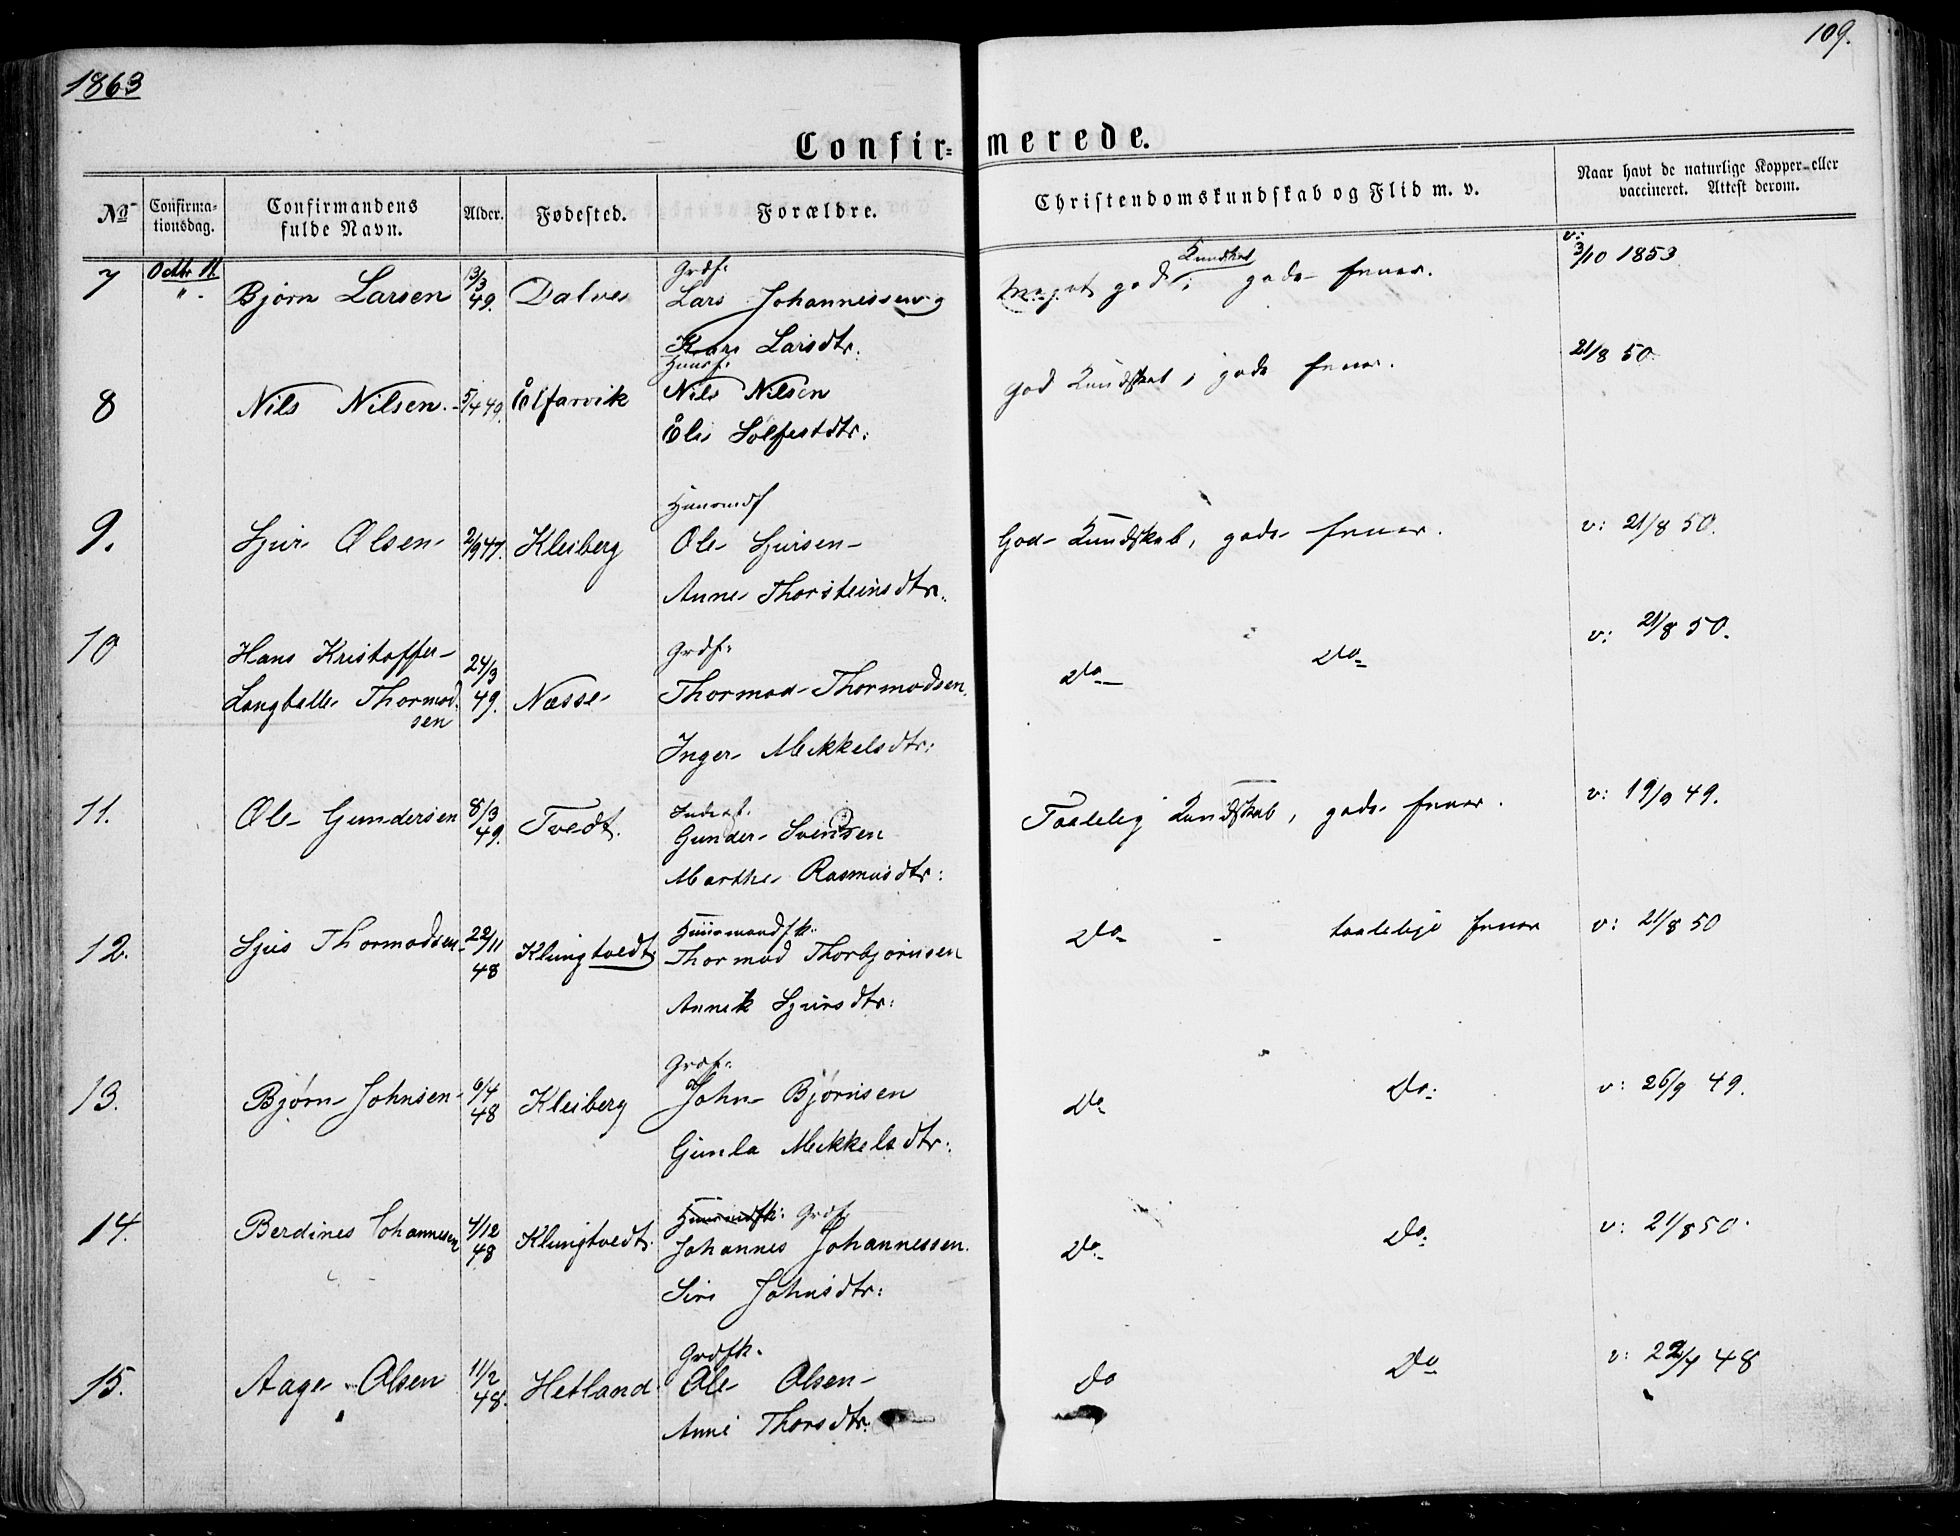 1863
109.
Confir= merede.
No
Confirma-
tionsdag.
Confirmandens
fulde Navn.
Alder.
Fødested.
Forældre.
Christendomskundskab og Flid m. v.
Naar havt de naturlige Kopper eller
vaccineret. Attest derom.
7 Octbr 11. Bjørn Larsen 13/3 49. Dalve Grdf: Lars Johannessen og
Kari Larsdtr.
Meget god Kundskab, gode Evner. v: 3/10 1853
8 Nils Nilsen. 5/4 49. Ølfarvik Huusf: Nils Nilsen
Eli Solfestdtr:
god Kundskab, gode Evner. 21/8 50
9. Sjur Olsen 2/9 47. Kleiberg Huusmdf Ole Sjursen
Anne Thorsteinsdtr.
God Kundskab, gode Evner. v: 21/8 50.
10 Hans Kristoffer
Langballe Thormod-
sen
24/3 49. Næsse Grdf: Thormod Thormodsen.
Inger Mikkelsdtr:
Do Do v: 21/8 50.
11. Ole Gundersen 8/3 49. Tvedt. Inderst. Gunder Svendsen
Marthe Rasmusdtr:
Taalelig Kundskab, gode Evner. v: 19/9 49.
12. Sjur Thormodsen 22/11 48 Klungtvedt Huusmandfk. Thormod Thorbjørnsen
Annik Sjursdtr:
Do - taalelige Evner v: 21/8 50
13. Bjørn Johnsen 6/4 48 Kleiberg Grdf: John Bjørnsen
Gunla Mikkelsdtr:
Do Do: v: 26/9 49.
14. Berdines Johannesen 4/12 48 Klungtvedt. Huusmdfk: Grdf Johannes Johannessen.
Siri Johnsdtr:
Do: Do: v: 21/8 50.
15. Aage Olsen 11/2 48. Hetland Grdfk. Ole Olsen
Anni Thorsdtr.
Do Do v: 22/7 48